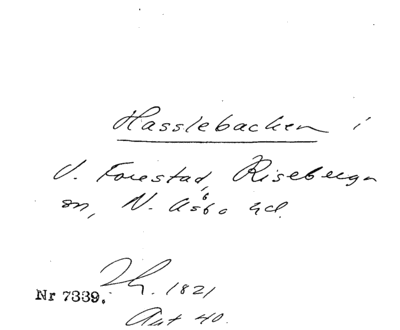 Hasslebacken i
V. Forestad, Riseberga
sn, N. Åsbo hd.
Th. 1821
Nr 7339.
Ant 40.